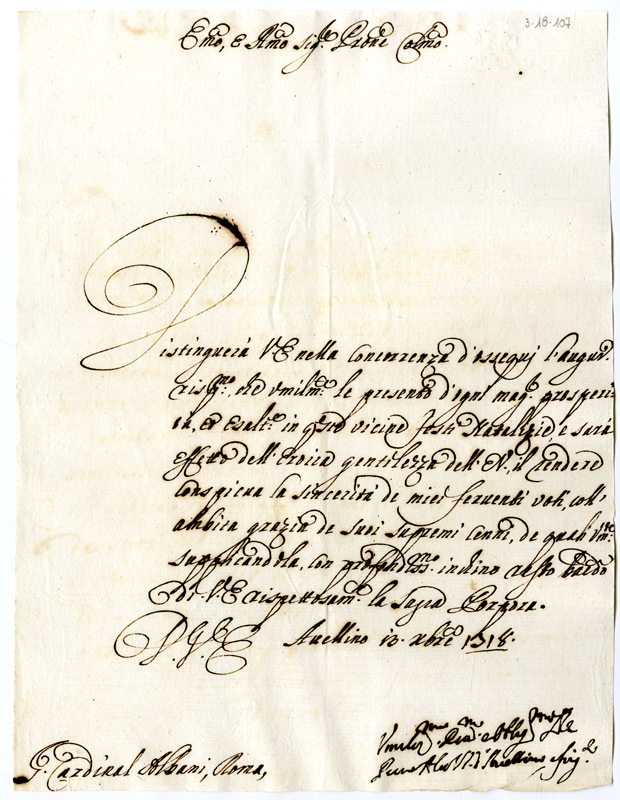 3-18-107
Emo, e Rmo Sigr. Prone Colmo.
Distinguerà V E nella Concorrenza d'ossequj l'augur.
risp.mo, che vmilmte le presento d'ogni magr. prosperi-
tà, et esaltne in qste vicine feste Natalizie, e sarà
effetto dell'eroica gentilezza dell'E V, il rendere
conspicua la sincerità de miei ferventi voti, coll'
ambita grazia de suoi supremi cenni, de quali vmte
supplicandola, con profondissmo. inchino resto baciando
Di V E rispettosamte. la Sagra Porpora.
D. V. E Avellino 13. Xbre 1718.
Vmilmo Devmo et Obligmo
Avellino
S. Cardinal Albani, Roma,